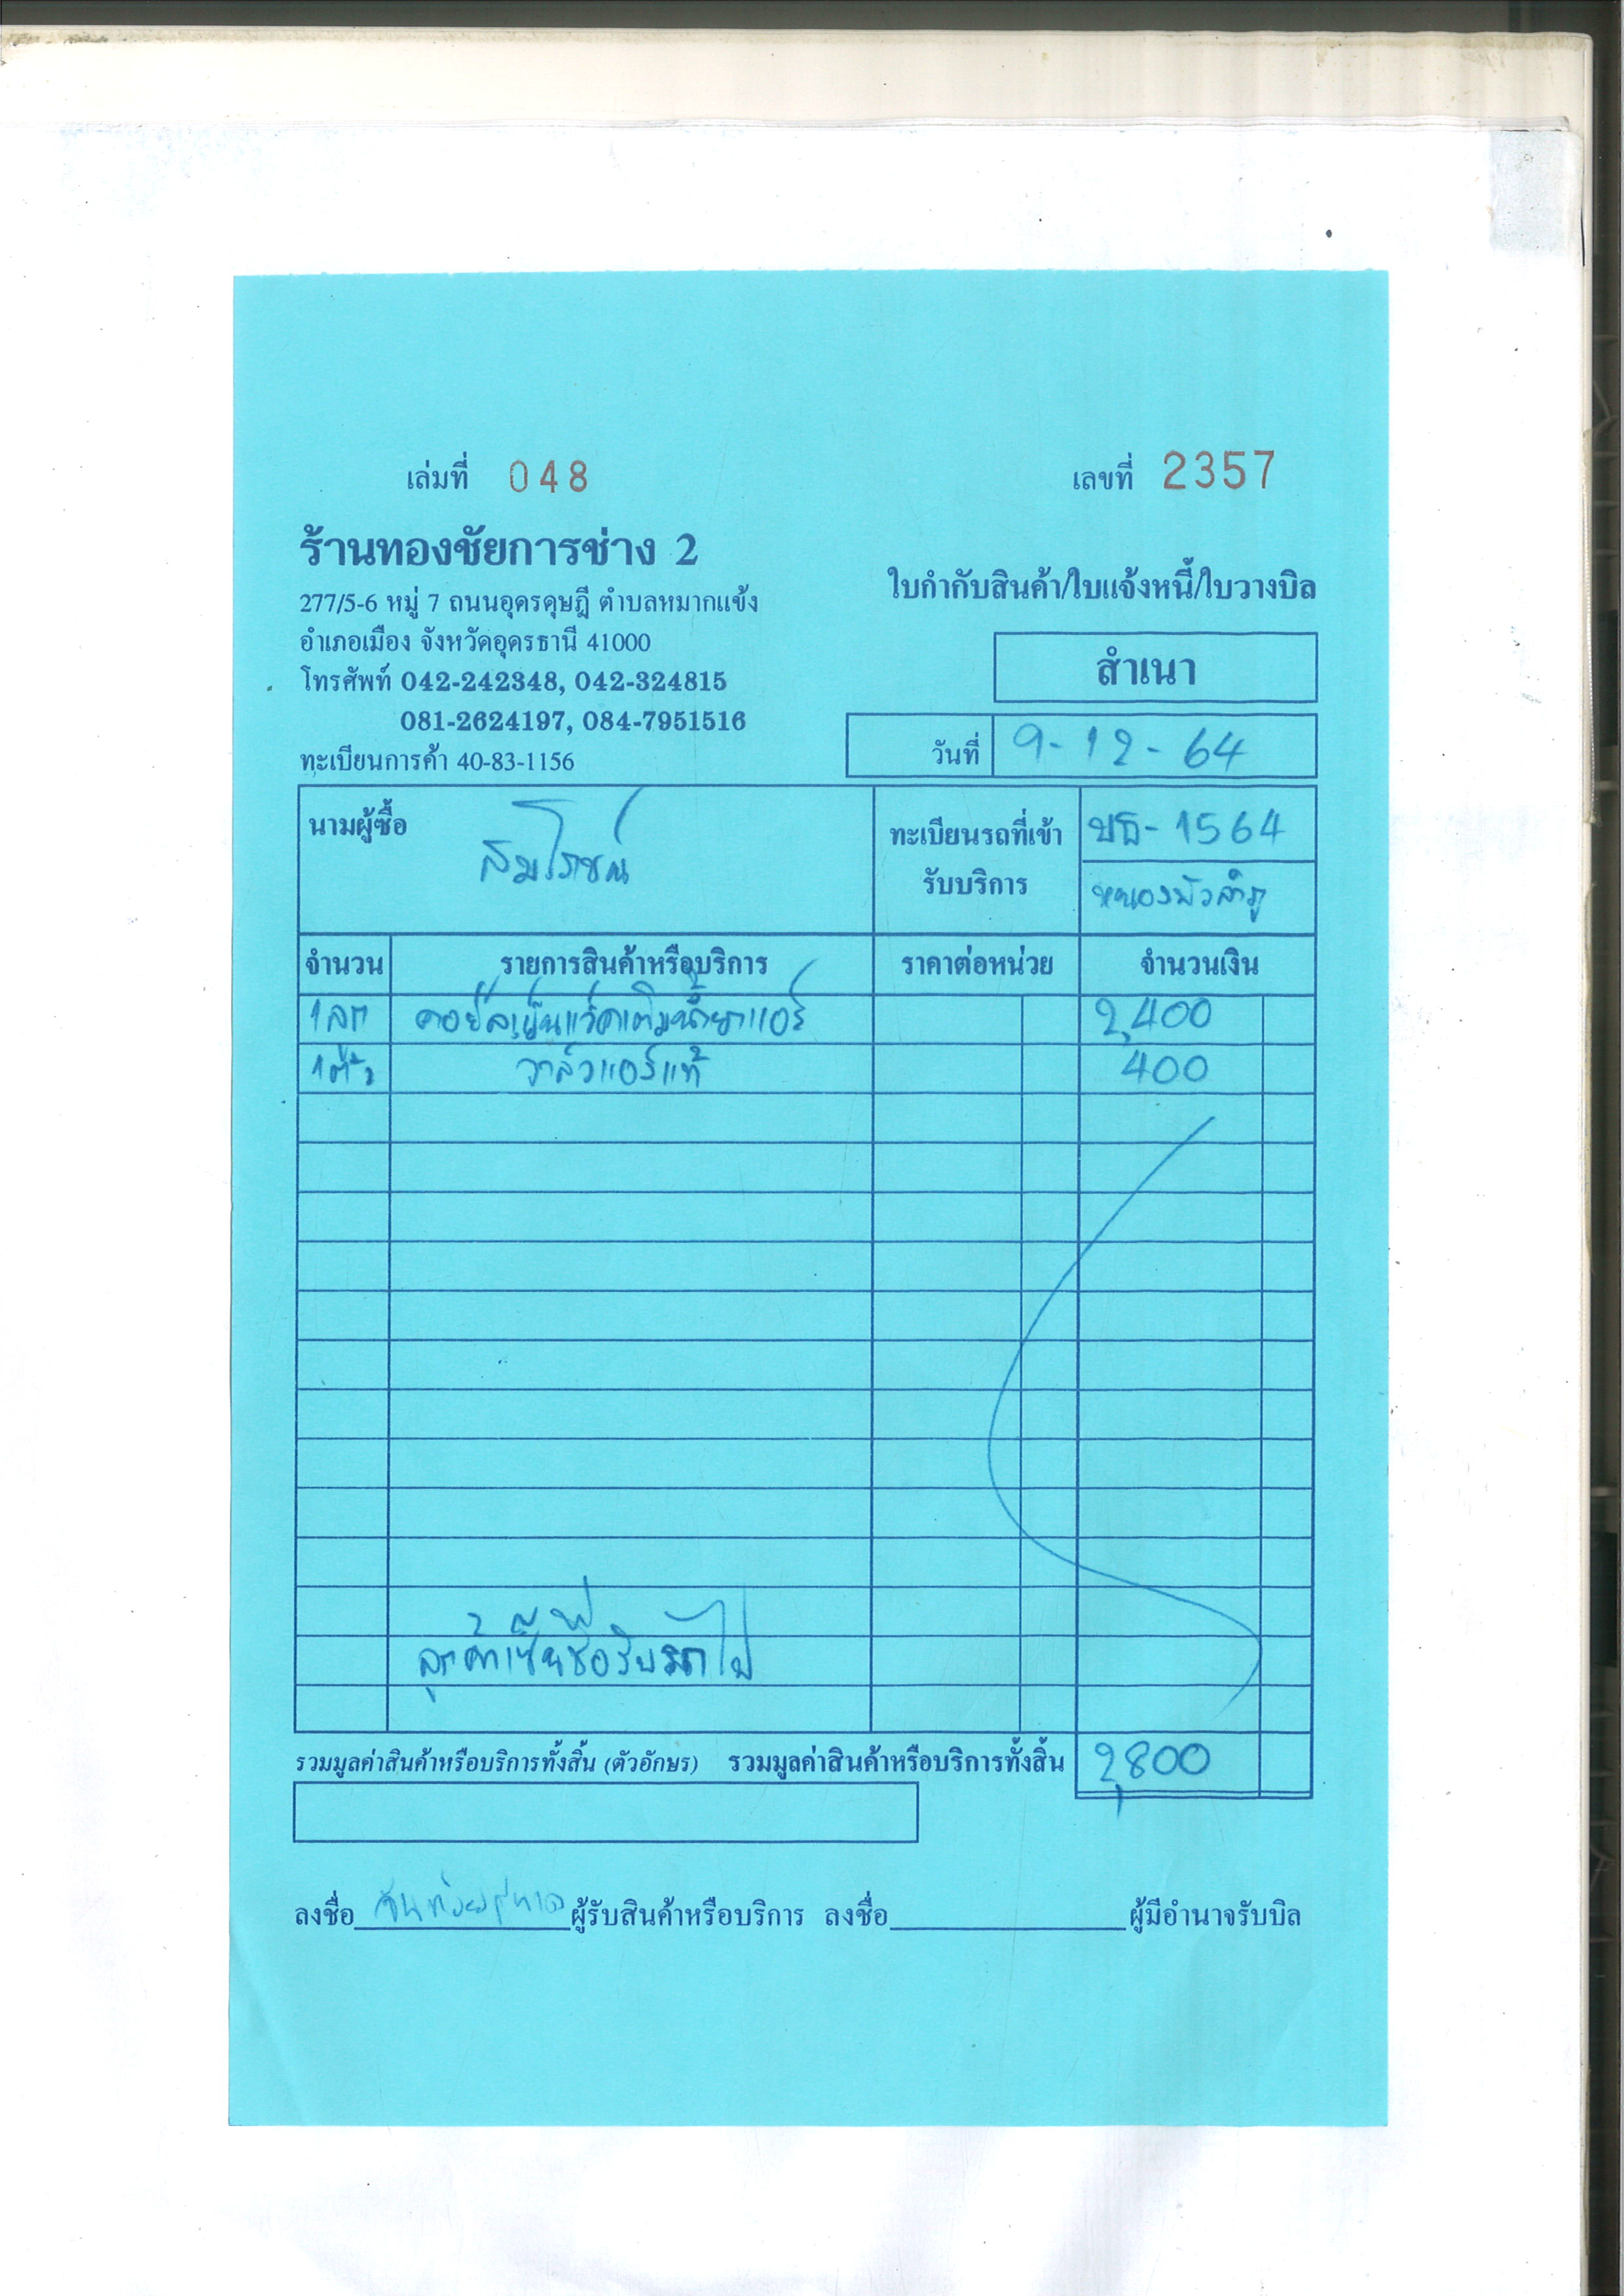 เล่มที่ 048 เลขที่ 2357
ร้านทองชัยการช่าง 2
ใบกำกับสินค้า/ใบแจ้งหนี้/ใบวางบิล
277/5-6 หมู่ 7 ถนนอุดรดุษฎี ตำบลหมากแข้ง
อำเภอเมือง จังหวัดอุดรธานี 41000
โทรศัพท์ 042-242348, 042-324815
สำเนา
081-2624197, 084-7951516
วันที่ 9-12-64
ทะเบียนการค้า 40-83-1156
นามผู้ซื้อ สมโภชน์
ทะเบียนรถที่เข้า บธ-1564
รับบริการ หนองบัวลำภู
จำนวน รายการสินค้าหรือบริการ ราคาต่อหน่วย จำนวนเงิน
1ลูก คอย์ลเย็นแว็คเติมน้ำยาแอร์ 2,400
1ตัว วาล์วแอร์แท้ 400
ลูกค้าเซ็นชื่อรับรถไป
รวมมูลค่าสินค้าหรือบริการทั้งสิ้น (ตัวอักษร) รวมมูลค่าสินค้าหรือบริการทั้งสิ้น 2,800
ลงชื่อ ผู้รับสินค้าหรือบริการ ลงชื่อ ผู้มีอำนาจรับบิล